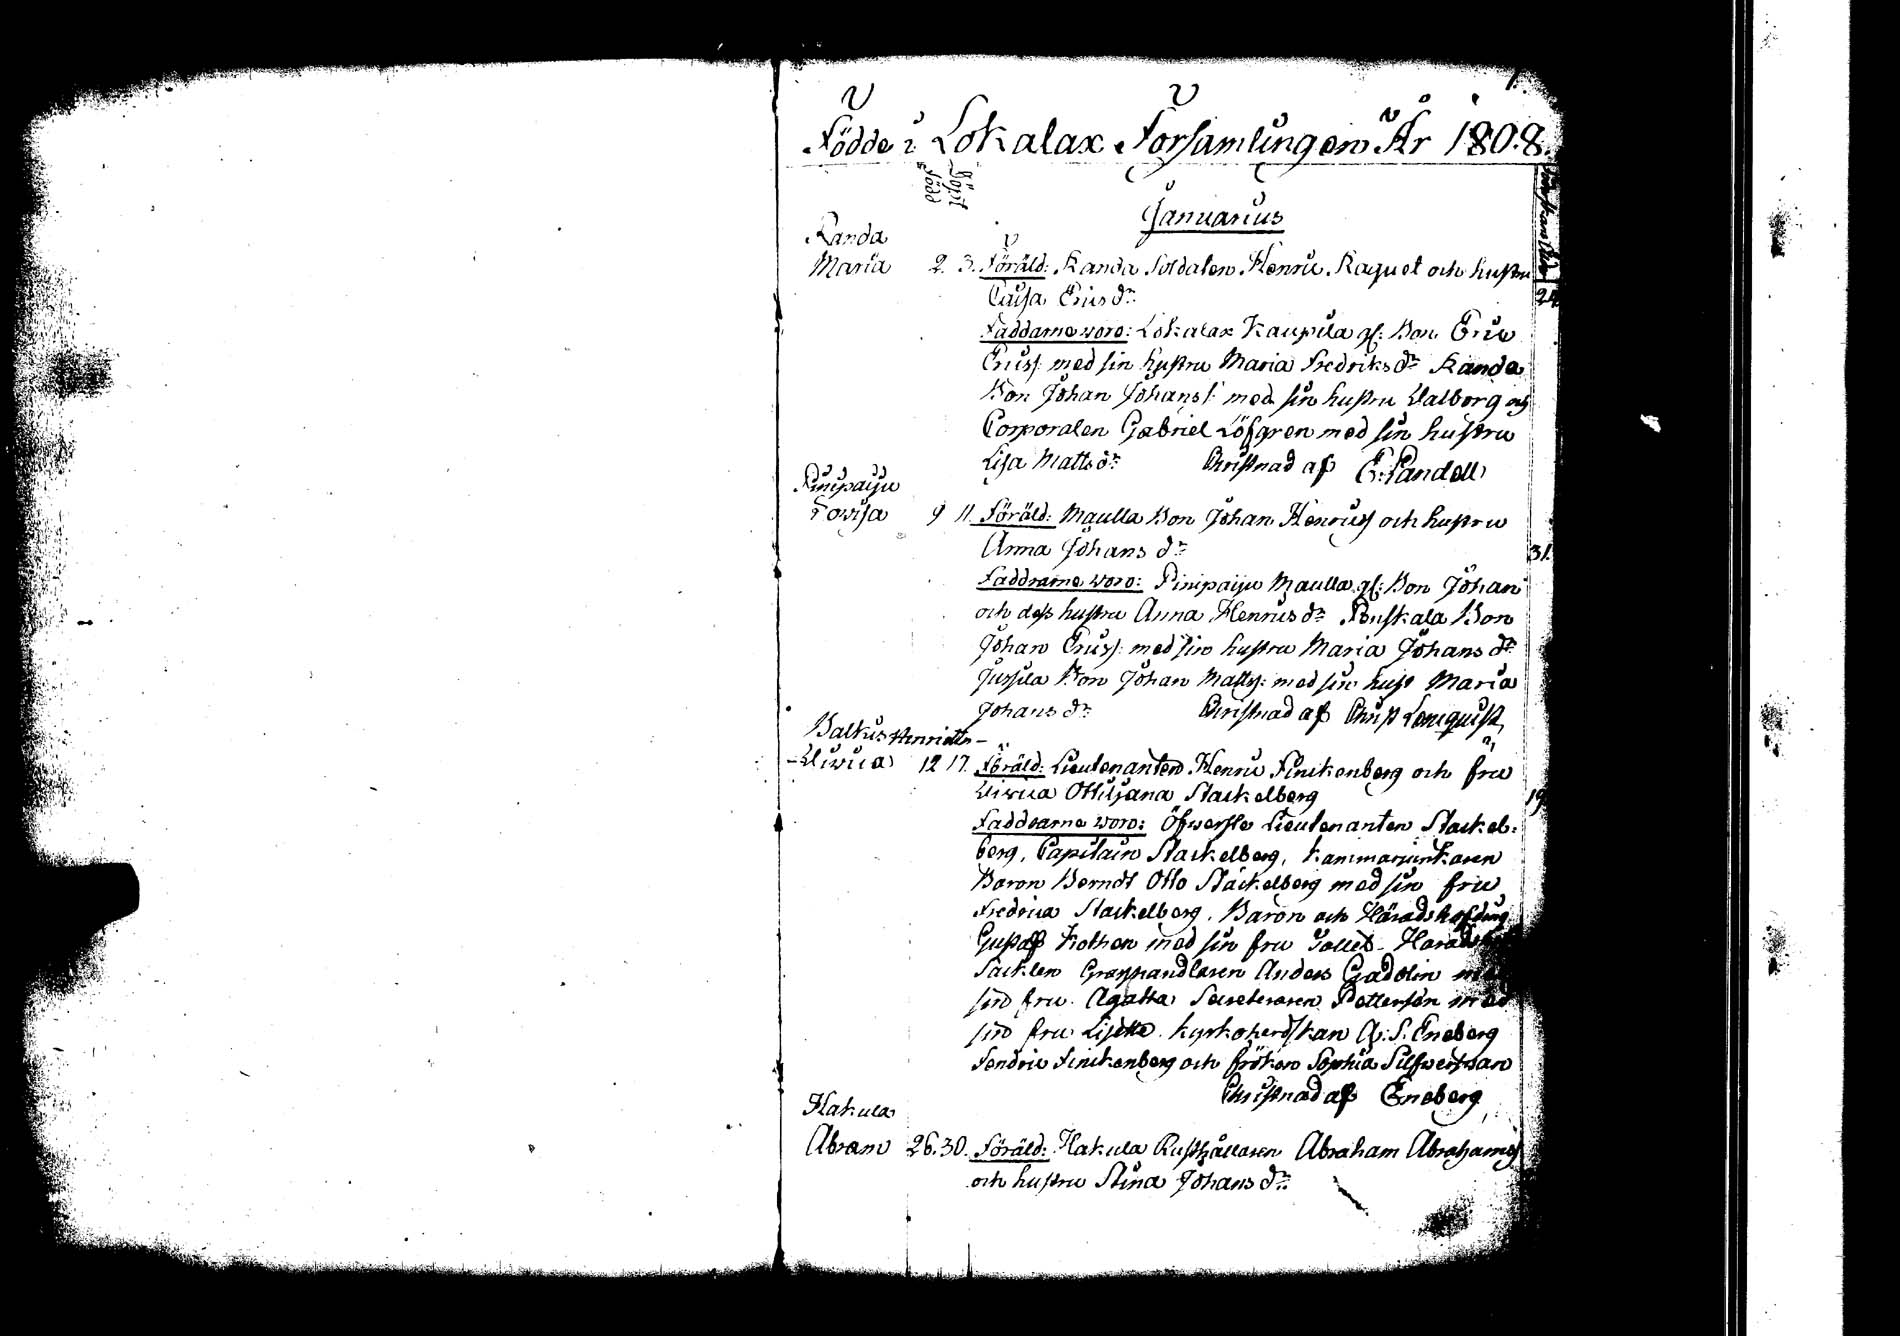 1.
Födde i Lokalax Församlingen År 1808.
Född
Döpt
Januarius
Randa
Maria 2. 3. Föräld: Randa Soldaten Henric Raquet och hustru
Caisa Ericsdr 24
Faddarne woro: Lokalax Kaupila gl: Bon. Eric
Ericss: med sin hustru Maria Fredriksdr Randa
Bon Johan Johanss: med sin hustru Walborg och
Corporalen Gabriel Löfgren med sin hustru
Lisa Mattsdr Christnad af E. Pandell
Pinipaiju
Lowisa 9 11. Föräld: Maulla Bon Johan Henricss och hustru
Anna Johansdr 31.
Faddrarne woro: Pinipaiju Maulla gl: Bon Johan
och dess hustru Anna Henricsdr Bon
Johan Ericss: med sin hustru Maria Johansdr
Jussila Bon Johan Matts: med sin hust Maria
Johansdr Christnad af Christ
Henrietta
Uirica 12 17. Föräld: Lieutenanten Henric Finckenberg och fru
Ottiljana Stackelberg 19
Faddrarne woro: Öfwerste Lieutenanten Stackel-
berg, Capitain Stackelberg, Kammarjunkaren
Baron Berndt Otto Stackelberg med sin fru
Fredrica Stackelberg. Baron och Häradshöfding
Gustaf Kothen med sin fru
Anders Gadolin med
sin fru Agatha Secreteraren Petterson med
sin fru Lisette. Kyrkoherdskan A: S. Eneberg
Fendric Finckenberg och fröken Sophia Silfwerswan
Christnad af Eneberg
Hakula
Abram 26. 30. Föräld: Hakula Rusthållaren Abraham Abrahamss
och hustru Stina Johansdr